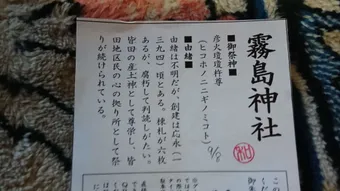 霧島神社
■御祭神■
彦火瓊瓊杵尊
(ヒコホノニニギノミコト)
9/8
■由緒■
由緒は不明だが、創建は応永(一
三九四)頃とある。棟札が六枚
あるが、腐朽して判読しがたい。
皆田の産土神として尊崇し、皆
田地区民の心の拠り所として祭
りが続けられている。
この
くだ
御朱